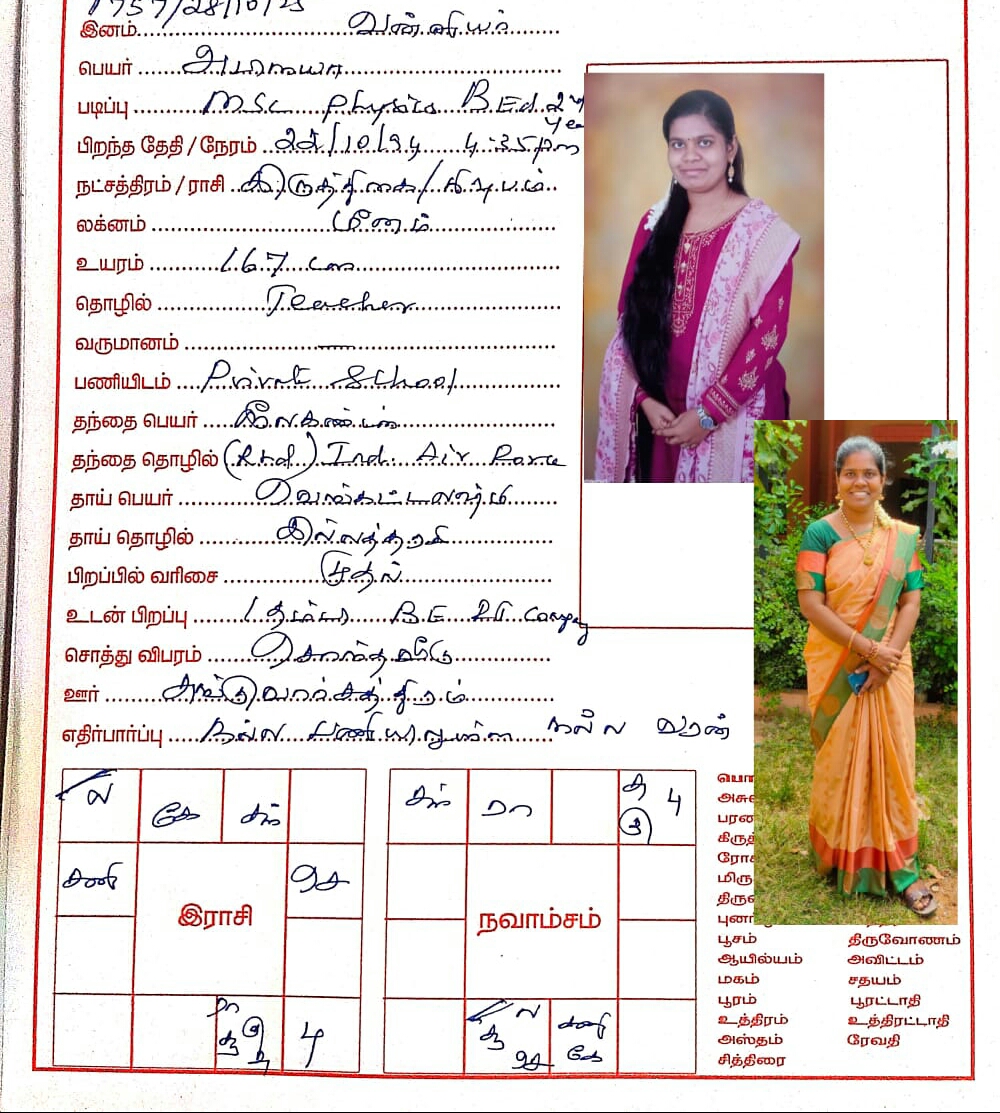 1757/28/10/25
இனம் வன்னியர்
பெயர்
படிப்பு MSc Physics B.Ed 2
Yea
பிறந்த தேதி / நேரம் 22/10/94 4.35pm
நட்சத்திரம் / ராசி கிருத்திகை / ரிஷபம்
லக்னம் மீனம்
உயரம் 167 cm
தொழில் Teacher
வருமானம் —
பணியிடம் Private School
தந்தை பெயர் நீலகண்டன்
தந்தை தொழில் (Rtd) Ind. Air Force
தாய் பெயர்
தாய் தொழில் இல்லத்தரசி
பிறப்பில் வரிசை முதல்
உடன் பிறப்பு 1 தம்பி B.E Company
சொத்து விபரம் சொந்த வீடு
ஊர்
எதிர்பார்ப்பு நல்ல பணியிலுள்ள நல்ல வரன்
ல கே சந்
சனி செ
இராசி
ரா சு கு பு
சந் ரா
நவாம்சம்
ல சனி கே
பொ
அசு
பரண
கிருத்
ரோ
மிரு
திரு
புனர்
பூசம் திருவோணம்
ஆயில்யம் அவிட்டம்
மகம் சதயம்
பூரம் பூரட்டாதி
உத்திரம் உத்திரட்டாதி
அஸ்தம் ரேவதி
சித்திரை